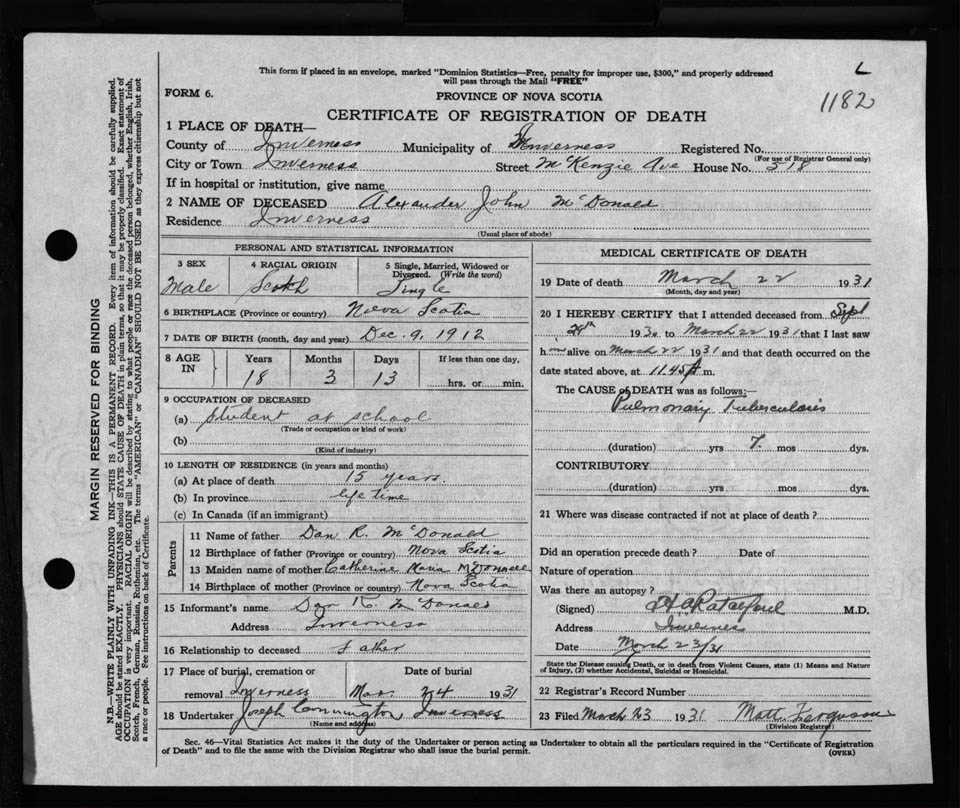 L
1182
This form if placed in an envelope, marked "Dominion Statistics—Free, penalty for improper use, $300," and properly addressed
will pass through the Mail "FREE"
FORM 6.
PROVINCE OF NOVA SCOTIA
CERTIFICATE OF REGISTRATION OF DEATH
1 PLACE OF DEATH—
County of Inverness Municipality of Inverness Registered No.
(For use of Registrar General only)
City or Town Inverness Street McKenzie Ave House No. 318
If in hospital or institution, give name
2 NAME OF DECEASED Alexander John McDonald
Residence Inverness
(Usual place of abode)
PERSONAL AND STATISTICAL INFORMATION
3 SEX 4 RACIAL ORIGIN 5 Single, Married, Widowed or
Divorced. (Write the word)
Male Scotch Single
6 BIRTHPLACE (Province or country) Nova Scotia
7 DATE OF BIRTH (month, day and year) Dec. 9, 1912
8 AGE IN Years Months Days If less than one day,
18 3 13 hrs. or min.
9 OCCUPATION OF DECEASED
(a) Student at school
(Trade or occupation or kind of work)
(b)
(Kind of industry)
10 LENGTH OF RESIDENCE (in years and months)
(a) At place of death 15 years.
(b) In province life time
(c) In Canada (if an immigrant)
Parents
11 Name of father Dan R. McDonald
12 Birthplace of father (Province or country) Nova Scotia
13 Maiden name of mother Catherine McDonnell
14 Birthplace of mother (Province or country) Nova Scotia
15 Informant's name Dan R. McDonald
Address Inverness
16 Relationship to deceased Father
17 Place of burial, cremation or Date of burial
removal Inverness Mar. 24 1931
18 Undertaker Joseph Inverness
(Name and address)
MEDICAL CERTIFICATE OF DEATH
19 Date of death March 22 1931
(Month, day and year)
20 I HEREBY CERTIFY that I attended deceased from Sept
1930 to March 22 1931 that I last saw
him alive on March 22 1931 and that death occurred on the
date stated above, at 11.45 m.
The CAUSE of DEATH was as follows:
Pulmonary Tuberculosis
(duration) yrs 7. mos dys.
CONTRIBUTORY
(duration) yrs mos dys.
21 Where was disease contracted if not at place of death?
Did an operation precede death? Date of
Nature of operation
Was there an autopsy?
(Signed) M.D.
Address Inverness
Date March 23/31
State the Disease causing Death, or in death from Violent Causes, state (1) Means and Nature
of Injury, (2) whether Accidental, Suicidal or Homicidal.
22 Registrar's Record Number
23 Filed March 23 1931 Matt. Ferguson
(Division Registrar)
Sec. 46—Vital Statistics Act makes it the duty of the Undertaker or person acting as Undertaker to obtain all the particulars required in the "Certificate of Registration
of Death" and to file the same with the Division Registrar who shall issue the burial permit.
(OVER)
MARGIN RESERVED FOR BINDING
N.B.—WRITE PLAINLY WITH UNFADING INK—THIS IS A PERMANENT RECORD. Every item of information should be carefully supplied.
AGE should be stated EXACTLY. PHYSICIANS should STATE CAUSE OF DEATH in plain terms, so that it may be properly classified. Exact statement of
OCCUPATION is very important. RACIAL ORIGIN will be described by stating to what people or race the deceased person belonged, whether English, Irish,
Scotch, French, German, Russian, Ruthenian, etc. The terms "AMERICAN" or "CANADIAN" SHOULD NOT BE USED as they express citizenship but not
a race or people. See instructions on back of Certificate.